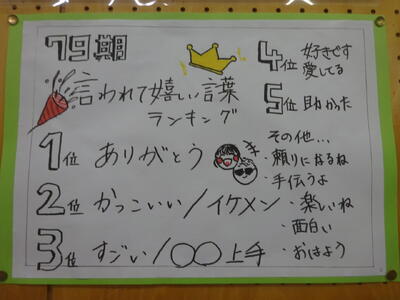 79期
言われて嬉しい言葉
ランキング
1位 ありがとう
2位 かっこいい/イケメン
3位 すごい/〇〇上手
4位 好きです
愛してる
5位 助かった
その他...
・頼りになるね
・手伝うよ
・楽しいね
・面白い
・おはよう